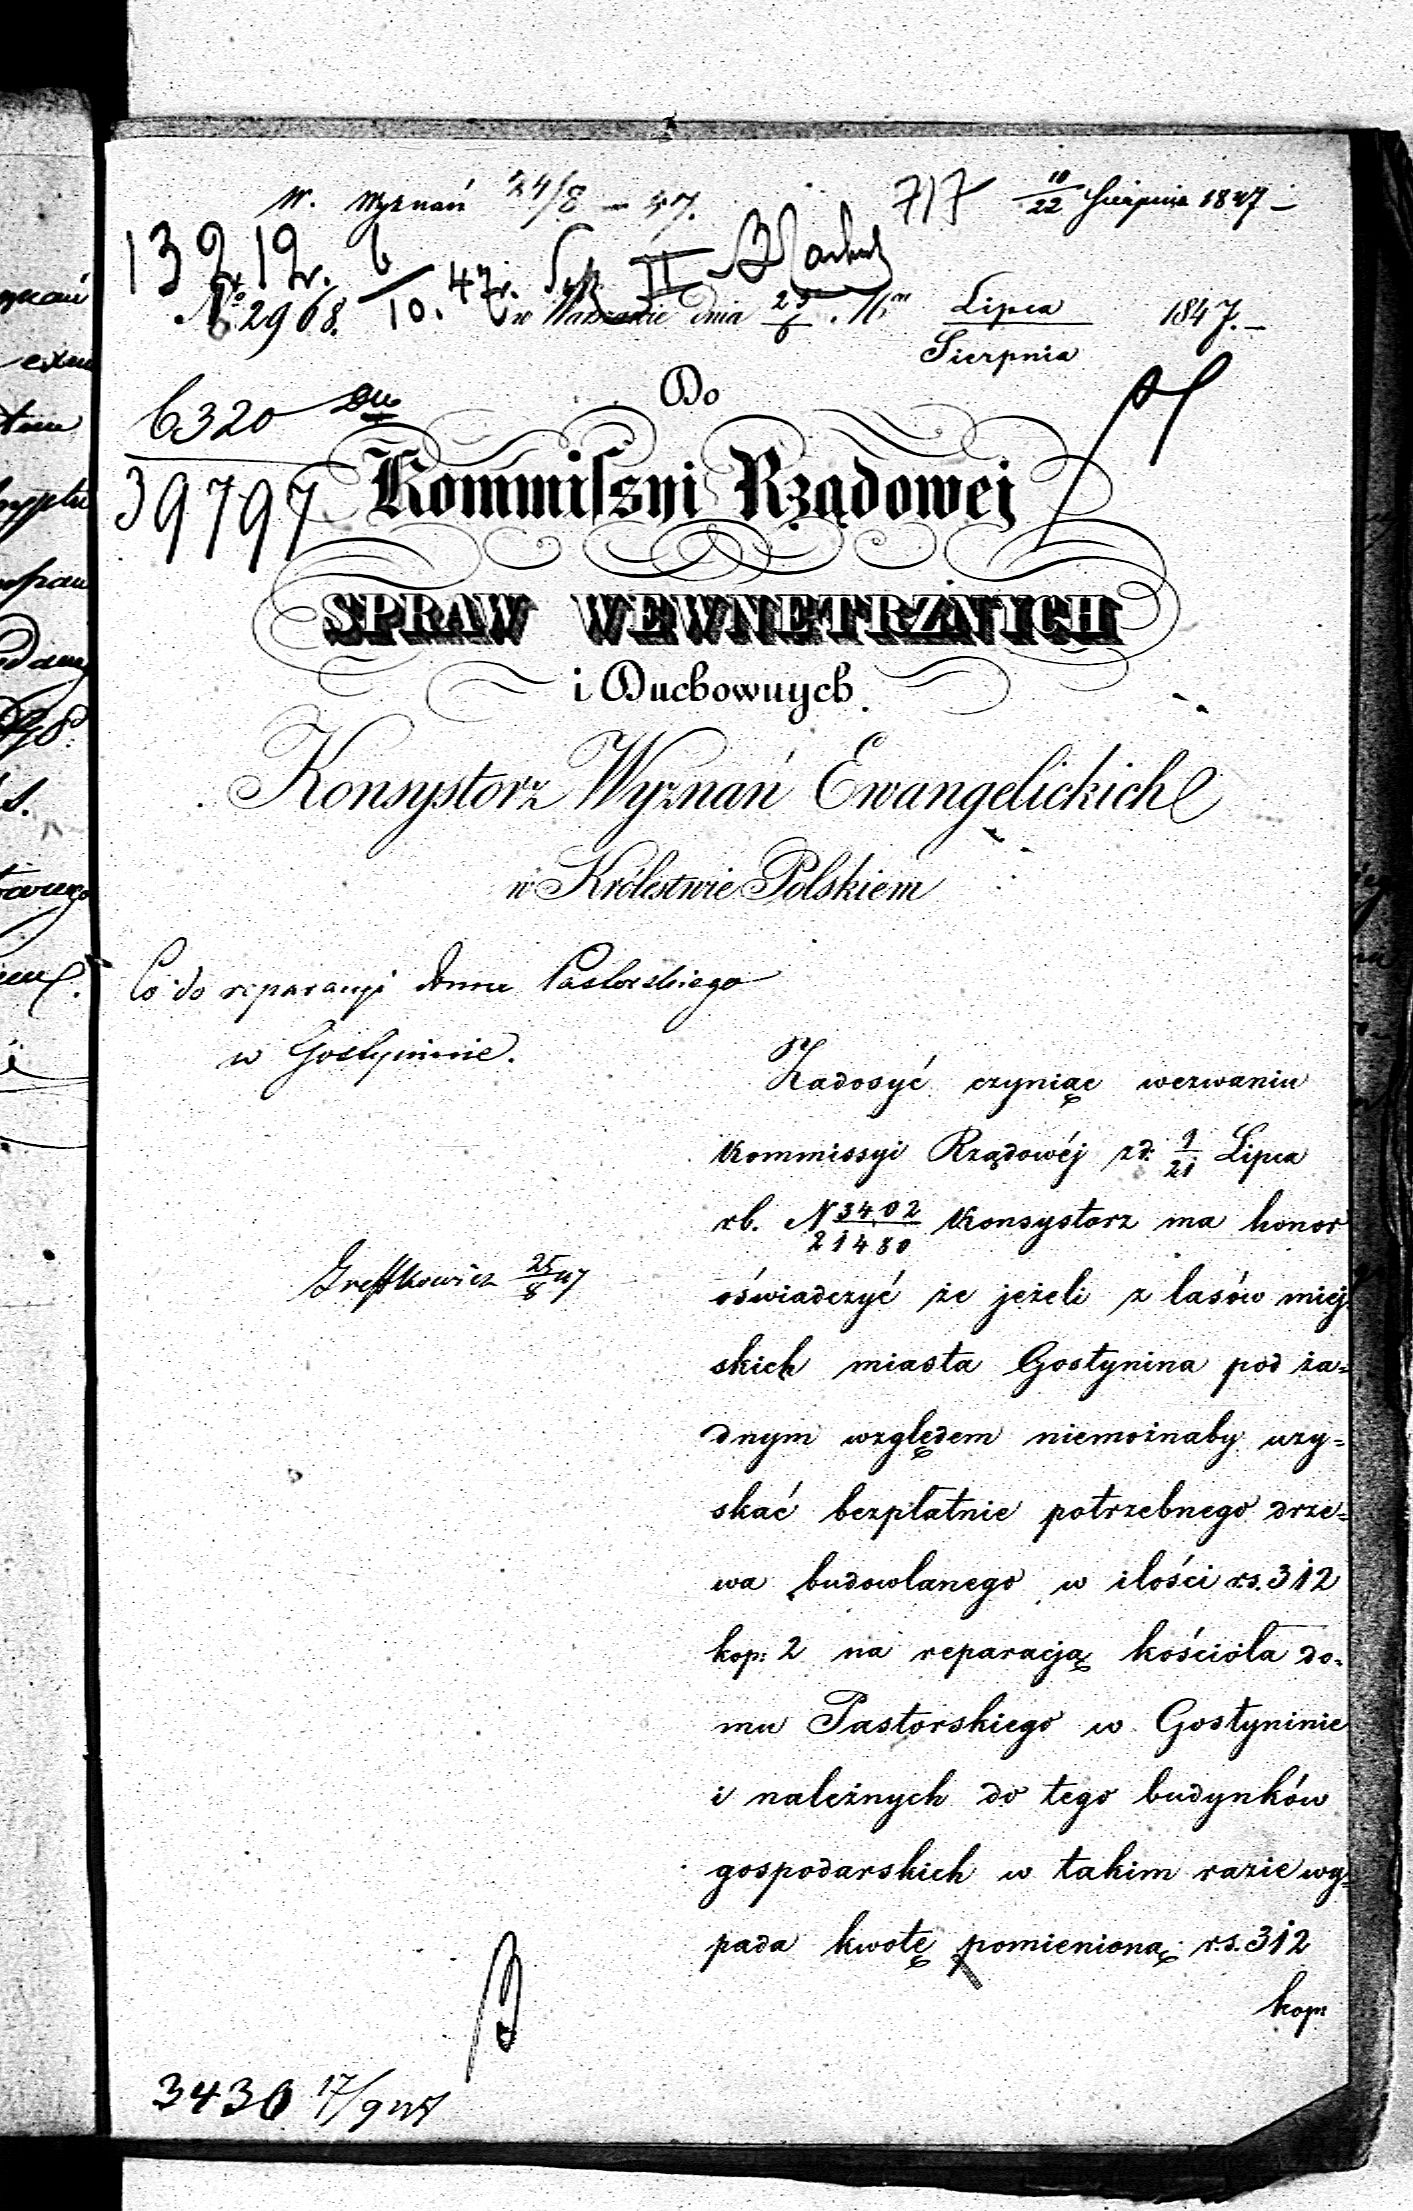 W. Wyznań 24/8 – 47. 717 10/22 Sierpnia 1847 –
13212. 6/10. 47. II
No 2968. w Warszawie dnia 25/6 Lipca/Sierpnia 1847. –
6320
39797
Do
Kommissyi Rządowej
SPRAW WEWNĘTRZNYCH
i Duchownych.
Konsystorz Wyznań Ewangelickich
w Królestwie Polskiem
Co do reparacyi domu Pastorskiego
w Gostyninie.
Zadosyć czyniąc wezwaniu
Kommissyi Rządowéj z d. 9/21 Lipca
r.b. N 3402/21480 Konsystorz ma honor
oświadczyć że jeżeli z lasów miej
skich miasta Gostynina pod ża=
dnym względem niemożnaby uzy=
skać bezpłatnie potrzebnego drze=
wa budowlanego w ilości rs. 312
kop: 2 na reparacją kościoła do=
mu Pastorskiego w Gostyninie
i należnych do tego budynków
gospodarskich w takim razie wy=
pada kwotę pomienioną r.s. 312
kop:
25/8 47
3430 17/9 47